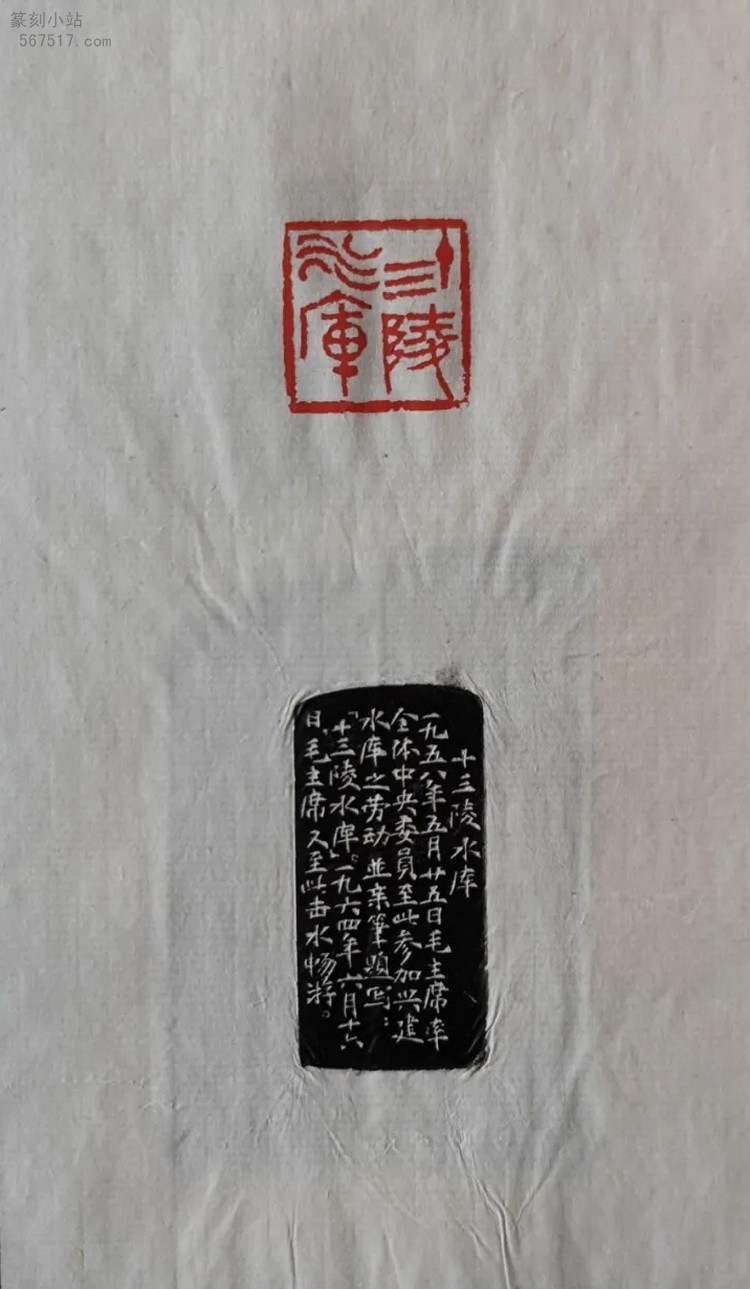 篆刻小站
567517.com
十三陵
水庫
十三陵水库
一九五八年五月廿五日毛主席率
全体中央委員至此参加兴建
水库之劳动並亲筆题写：
「十三陵水库」。一九六四年六月十六
日，毛主席又至此击水畅游。